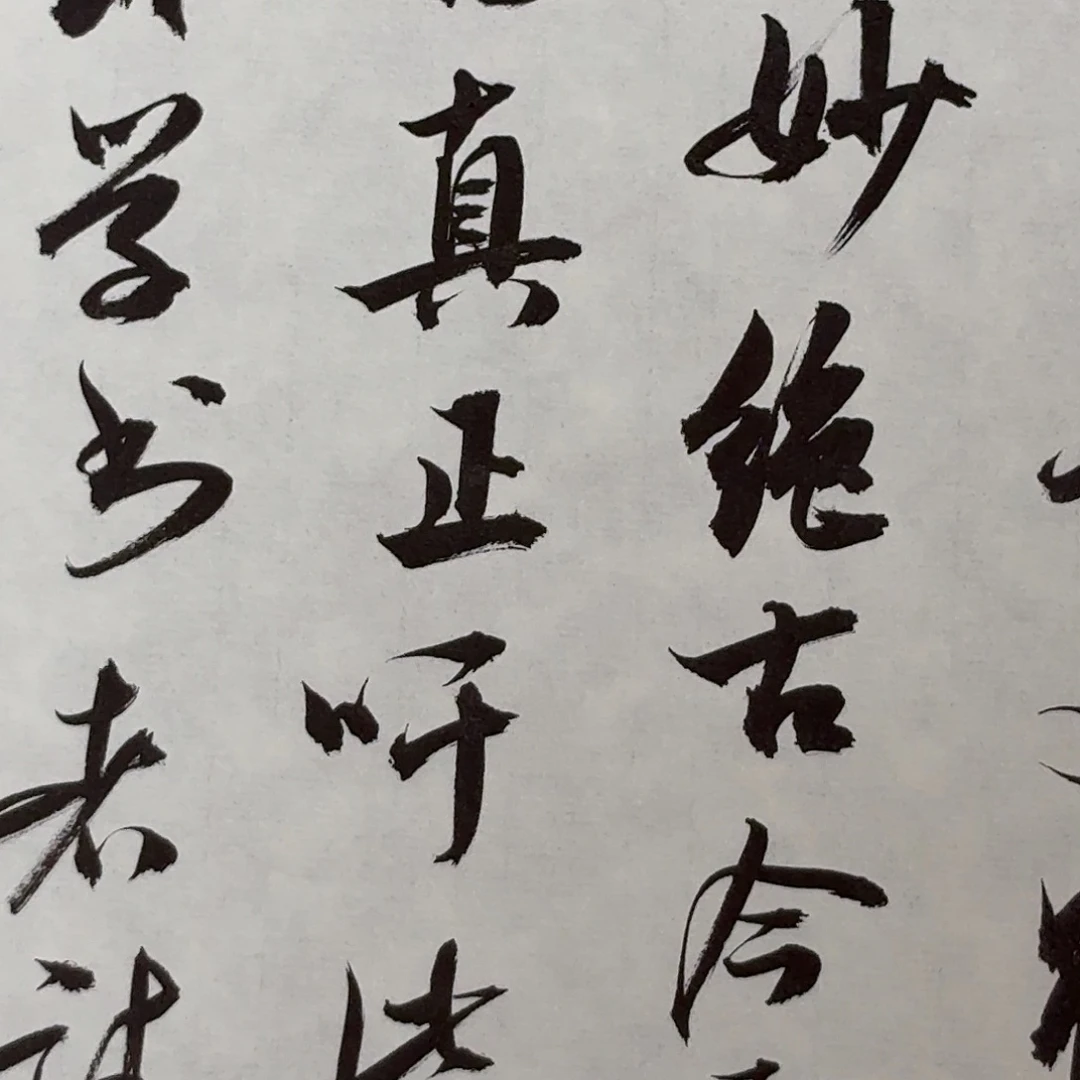 妙绝古今
真正吁此
学书者